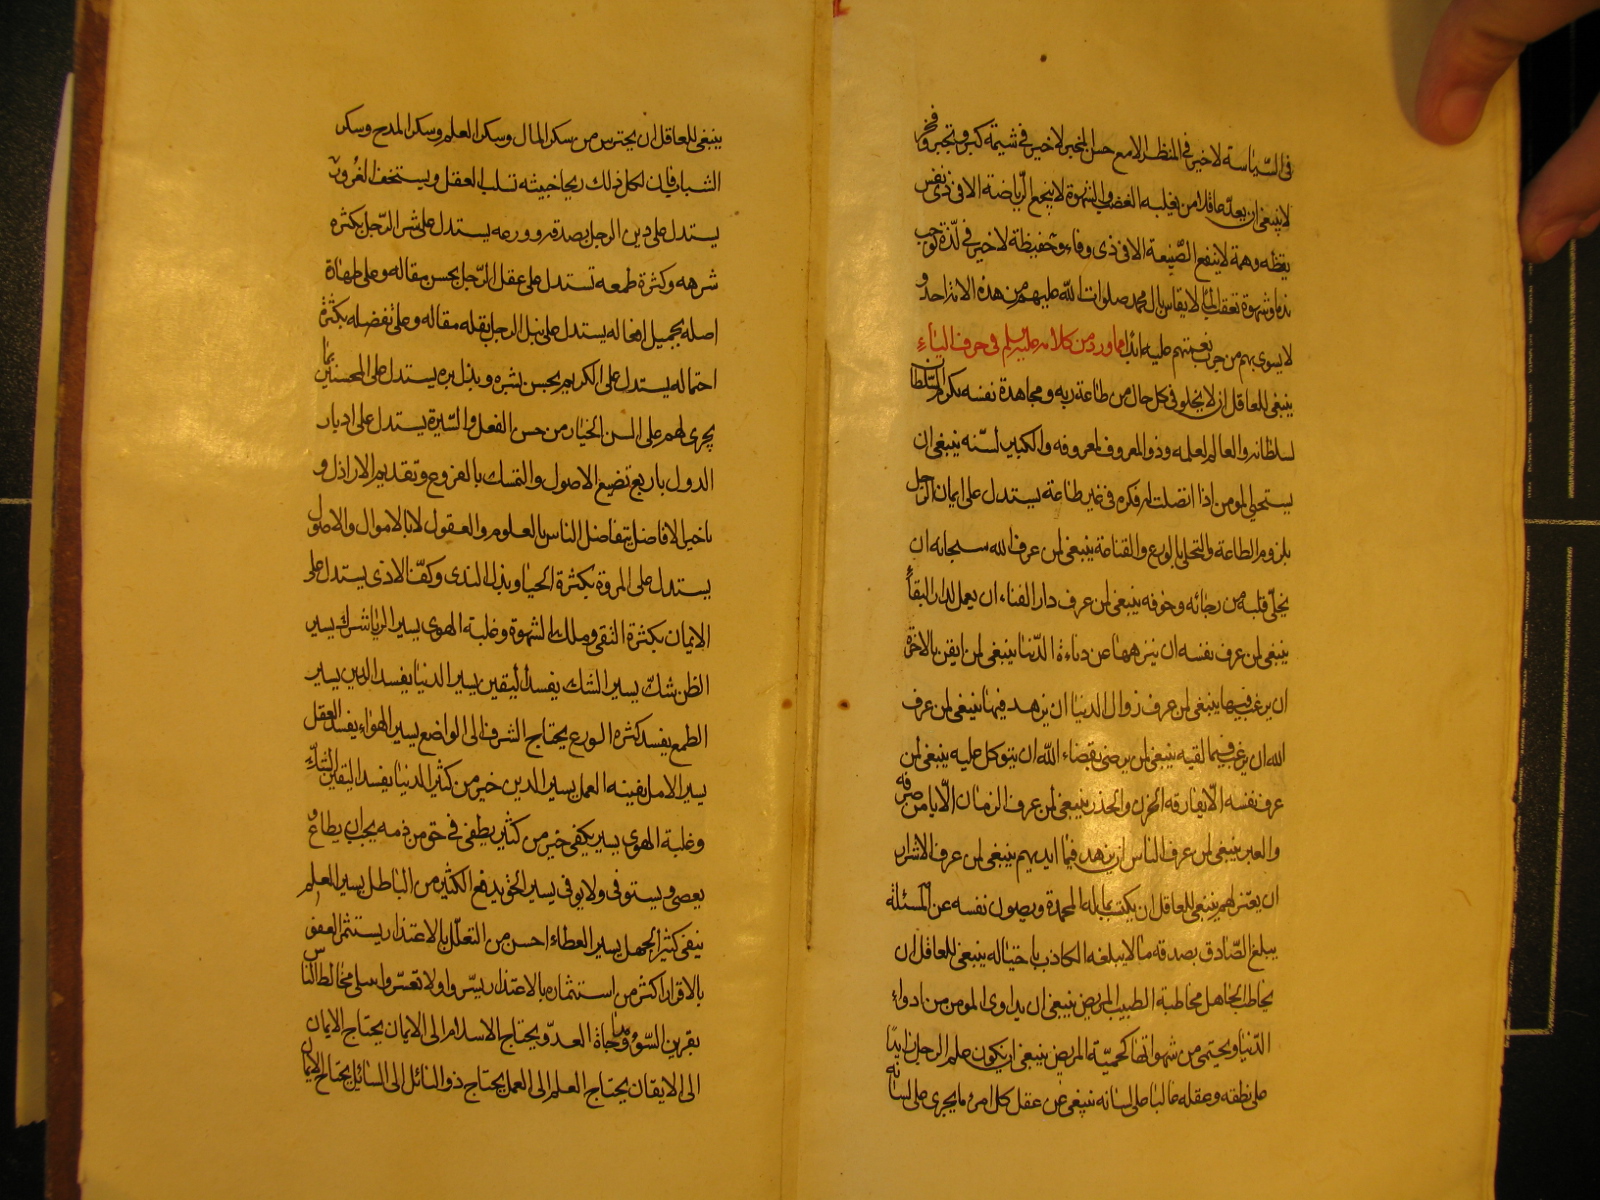 فى السّياسة لاخير فى المنظر الا مع حسن المخبر لاخير فى شيمة كبر وتجبر وفخر
لا ينبغى ان يعدّ عاقلا من يغلبه الغضب والشهوة لا ينجع الرّياضة الا فى ذى نفس
يقظه وهمة لا ينفع الصّنيعة الا فى ذى وفاء وحفيظة لاخير فى لذّة توجب
ندما وشهوة تعقب الما لا يقاس بال محمد صلوات الله عليهم من هذه الامة احد و
لا يسوى بهم من جرت نعمتهم عليه ابدا مما ورد من كلامه عليه السلم فى حرف الياء
ينبغى للعاقل ان لا يخلو فى كل حال من طاعة ربه ومجاهدة نفسه يكرم السّلطان
لسلطانه والعالم لعلمه وذو المعروف لمعروفه والكبير لسنّه ينبغى ان
يستحيى المومن اذا اتصلت له فكره فى غير طاعة يستدل على ايمان الرّجل
بلزوم الطاعة والتحلى بالورع والقناعة ينبغى لمن عرف الله سبحانه ان
يخلّى قلبه من رجائه وخوفه ينبغى لمن عرف دار الفناء ان يعمل لدار البقاء
ينبغى لمن عرف نفسه ان ينزهها عن دناءة الدّنيا ينبغى لمن ايقن بالاخرة
ان يرغب فيها ينبغى لمن عرف زوال الدنيا ان يزهد فيها ينبغى لمن عرف
الله ان يرغب فيما لقيه ينبغى لمن يرضى بقضاء الله ان يتوكل عليه ينبغى لمن
عرف نفسه الّا يفارقه الحزن والحذر ينبغى لمن عرف الزمان الّا يامن صرفه
والعبر ينبغى لمن عرف الناس ان يزهد فيما ايديهم ينبغى لمن عرف الاشرار
ان يعتزلهم ينبغى للعاقل ان يكتسب بماله المحمدة ويصون نفسه عن المسئلة
يبلغ الصّادق بصدقه ما لا يبلغه الكاذب باحتياله ينبغى للعاقل ان
يخاطب الجاهل مخاطبة الطبيب المريض ينبغى ان يداوى المومن من ادواء
الدّنيا ويحتمى من شهواتها كحميّة المريض ينبغى ان يكون علم الرجل زايدًا
على نطقه وعقله غالبا على لسانه ينبئ عن عقل كل امرء ما يجرى على لسانه
ينبغى للعاقل ان يحترس من سكر المال وسكر العلم وسكر المدح وسكر
الشباب فان لكل ذلك ريحا خبيثه تسلب العقل ويستخف الوقور
يستدل على دين الرجل بصدقه وورعه يستدل على شر الرّجل بكثرة
شرهه وكثرة طمعه تستدل على عقل الرّجل بحسن مقاله وعلى طهارة
اصله بجميل افعاله يستدل على نبل الرجل بقلة مقاله وعلى تفضله بكثرة
احتماله يستدل على الكريم بحسن بشره وبذل بره يستدل على المحسنين بما
يجرى لهم على السن الاخيار من حسن الفعل والسّيرة يستدل على ادبار
الدول باربع تضيع الاصول والتمسك بالفروع وتقديم الاراذل و
تاخير الافاضل يتفاضل الناس بالعلوم والعقول لا بالاموال والاصول
يستدل على المروة بكثرة الحيا وبذل الندى وكف الاذى يستدل على
الايمان بكثرة التقى وملك الشهوة وغلبة الهوى يسير الريا شرك يسير
الظن شكّ يسير الشك يفسد اليقين يسير الدنيا يفسد الدين يسير
الطمع يفسد كثرة الورع يحتاج الشرف الى الواضع يسير الهواء يفسد العقل
يسير الامل يفينه العمل يسير الدين خير من كثير الدنيا يفسد اليقين الشكّ
وغلبة الهوى يسير يكفى خير من كثير يطغى فى حق من ذمه يجب ان يطاع و
يعصى ويستوفى ولا يوفى يسير الحق يدفع الكثير من الباطل يسير العلم
ينفى كثير الجهل يسير العطاء احسن من التعلّل بالاعتذار يستثمر العفو
بالاقرار اكثر من استثماره بالاعتذار يسّروا ولا تعسّروا يبتلى مخالط الناس
بقرين السّوء ومداجاة العدوّ يحتاج الاسلام الى الايمان يحتاج الايمان
الى الايقان يحتاج العلم الى العمل يحتاج ذو النائل الى السائل يحتاج الايمان